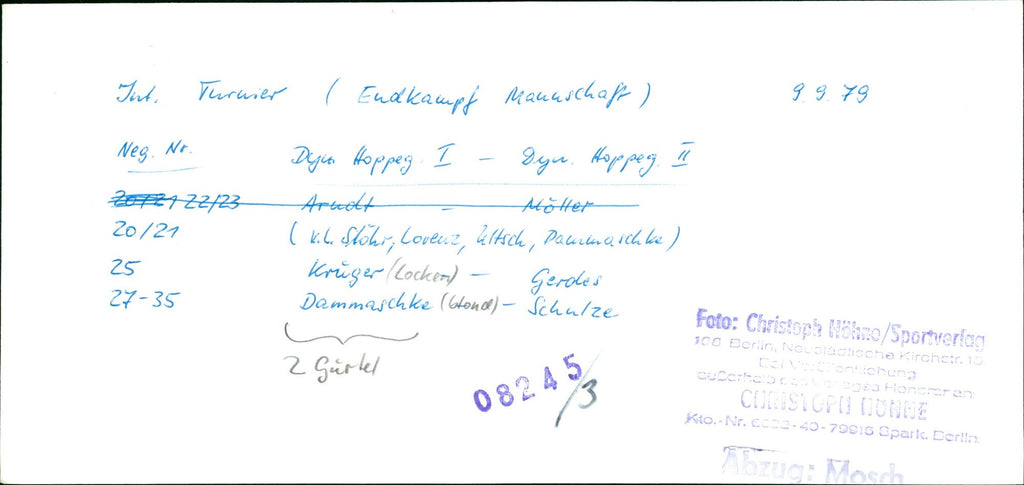 Int. Turnier ( Endkampf Mannschaft ) 9.9.79
Neg. Nr. Dyn. Hoppeg. I – Dyn. Hoppeg. II
20/21 22/23 Arndt – Möller
20/21 ( v.l. Stöhr, Lorenz, Ultsch, Dammaschke )
25 Krüger (Locken) – Gerdes
27-35 Dammaschke (blond) – Schulze
2 Gürtel
08245/3
Foto: Christoph Höhne/Sportverlag
108 Berlin, Neustädtische Kirchstr. 15
Bei Veröffentlichung
außerhalb des Verlages Honorar an:
CHRISTOPH HÖHNE
Kto.-Nr. 40-79916 Spark. Berlin
Abzug: Mosch